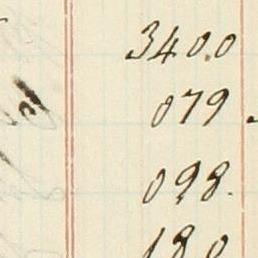 3400
079
098.
180